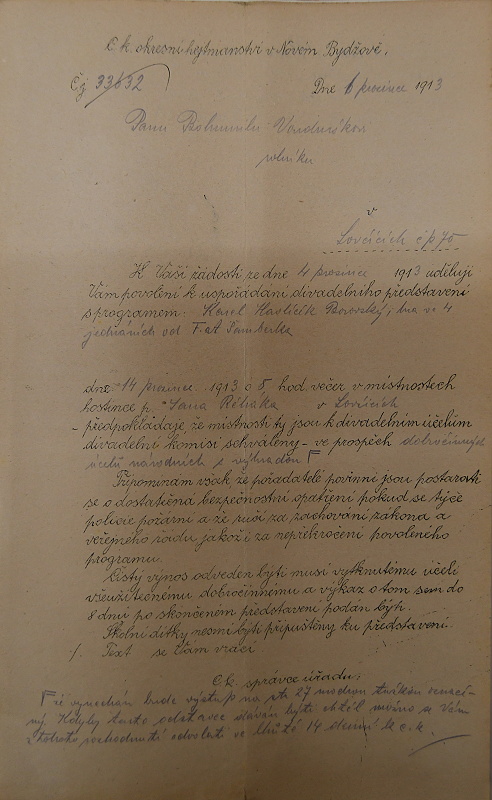 C. k. okresní hejtmanství v Novém Bydžově.
Čj 33632 Dne 6 prosince 1913
Panu Bohumilu Vondruškovi
rolníku
v
Lovčicích čp 70
K Vaší žádosti ze dne 4 prosince 1913 uděluji
Vám povolení k uspořádání divadelního představení
s programem: Karel Havlíček Borovský, hra ve 4
jednáních od F. A. Šamberka
dne 14 prosince 1913 o 8 hod. večer v místnostech
hostince p. Jana v Lovčicích
- předpokládaje, že místnosti ty jsou k divadelním účelům
divadelní komisí schváleny - ve prospěch dobročinných
účelů národních s výhradou
Připomínám však, že pořadatelé povinni jsou postarati
se o dostatečná bezpečnostní opatření pokud se týče
policie požární a že ručí za zachování zákona a
veřejného řádu jakož i za nepřekročení povoleného
programu.
Čistý výnos odveden býti musí vytknutému účeli
všeužitečnému dobročinnému a výkaz o tom sem do
8 dnů po skončeném představení podán býti.
Školní dítky nesmí býti připuštěny ku představení.
1. Text se Vám vrací
C. k. správce úřadu:
že vynechán bude výstup na str. 27 modrou tužkou
Kdyby tento odstavec dáván býti chtěl Vám
z tohoto rozhodnutí odvolati ve lhůtě 14 denní k c. k.